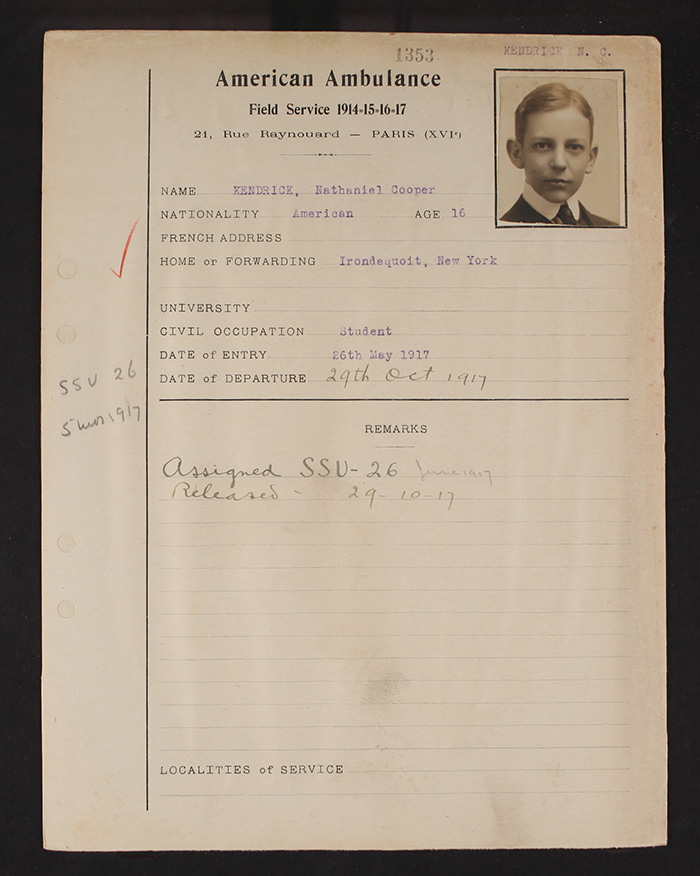 1353
KENDRICK N. C.
American Ambulance
Field Service 1914-15-16-17
21, Rue Raynouard — PARIS (XVIe)
NAME KENDRICK, Nathaniel Cooper
NATIONALITY American AGE 16
FRENCH ADDRESS
HOME or FORWARDING Irondequoit, New York
UNIVERSITY
CIVIL OCCUPATION Student
DATE of ENTRY 26th May 1917
DATE of DEPARTURE 29th Oct 1917
SSU 26
5 mos 1917
REMARKS
Assigned SSU-26 June 1917
Released - 29-10-17
LOCALITIES of SERVICE